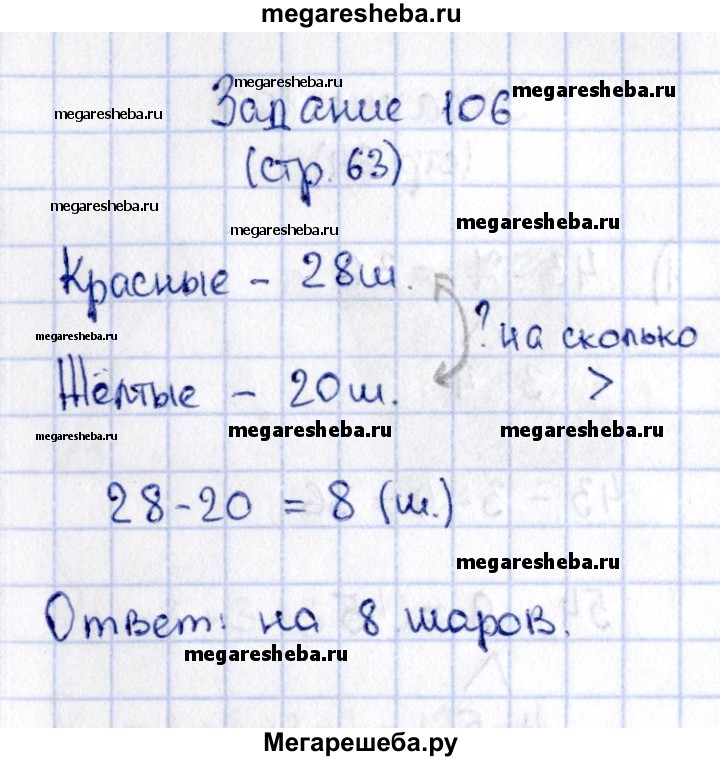 megaresheba.ru
megaresheba.ru
megaresheba.ru
megaresheba.ru
Задание 106
(стр. 63)
megaresheba.ru
megaresheba.ru
megaresheba.ru
Красные - 28ш.
? на сколько
>
megaresheba.ru
Жёлтые - 20ш.
megaresheba.ru
megaresheba.ru
megaresheba.ru
28-20 = 8 (ш.)
megaresheba.ru
Ответ: на 8 шаров.
megaresheba.ru
Мегарешеба.ру